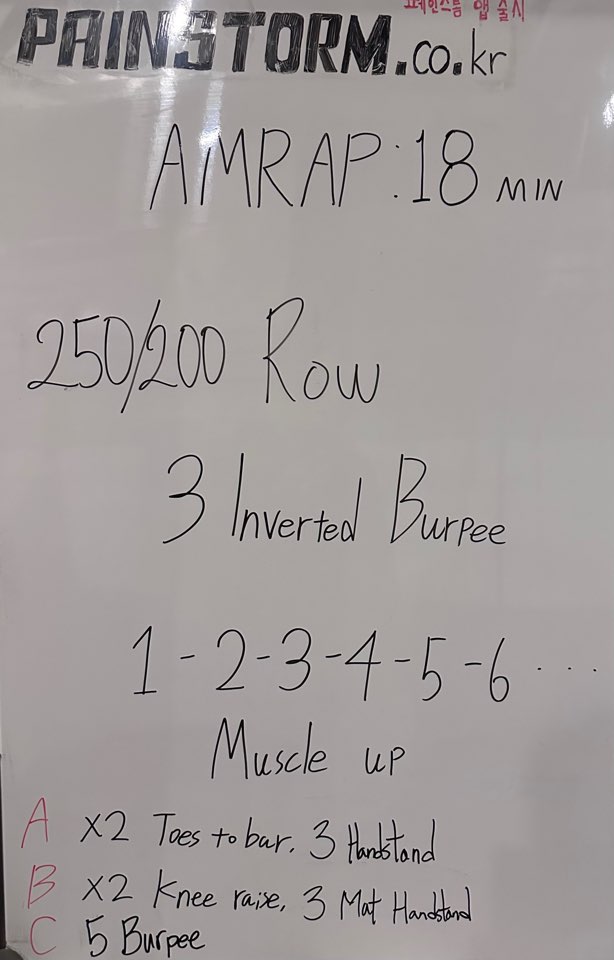 프페인스톰 앱 출시
PAINSTORM.co.kr
AMRAP:18 MIN
250/200 Row
3 Inverted Burpee
1-2-3-4-5-6...
Muscle up
A x2 Toes to bar. 3 Handstand
B x2 Knee raise, 3 Mat Handstand
C 5 Burpee